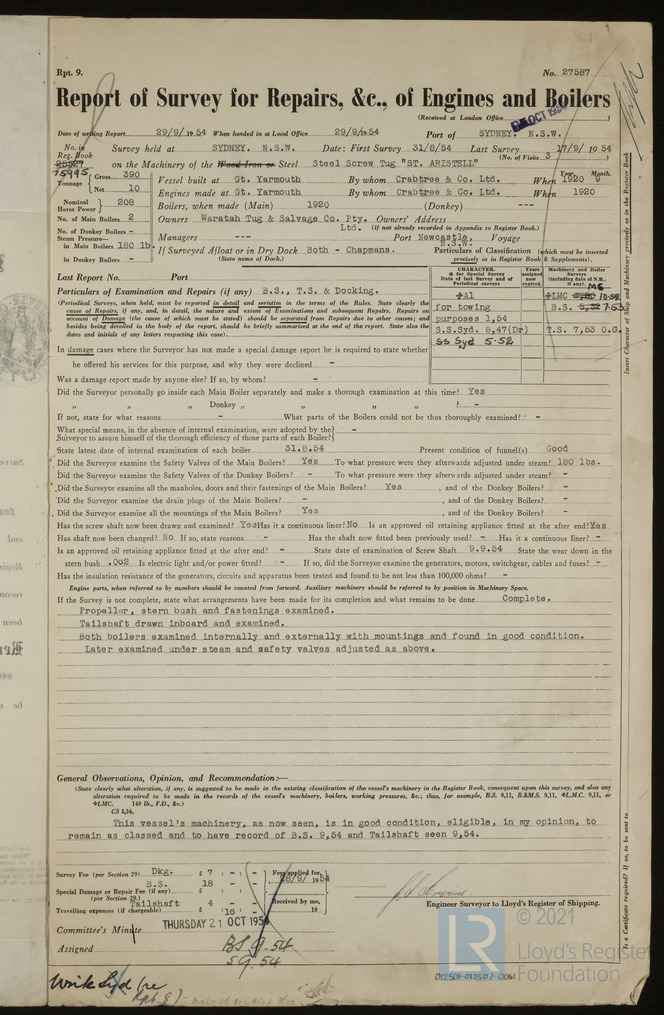 Rpt. 9. No. 27587
Report of Survey for Repairs, &c., of Engines and Boilers
(Received at London Office
OCT 1954
Date of writing Report 29/9/1954 When handed in at Local Office 29/9/1954 Port of SYDNEY, N.S.W.
No. in Reg. Book Survey held at SYDNEY, N.S.W. Date: First Survey 31/8/54 Last Survey 17/9/1954
(No. of Visits 3
75995 on the Machinery of the Wood Iron or Steel Steel Screw Tug "ST. ARISTELL"
Tonnage Gross 390 Vessel built at Gt. Yarmouth By whom Crabtree & Co. Ltd. When Year. 1920 Month. 9
Net 10 Engines made at Gt. Yarmouth By whom Crabtree & Co. Ltd. When 1920
Nominal Horse Power 208 Boilers, when made (Main) 1920 (Donkey) ---
No. of Main Boilers 2 Owners Waratah Tug & Salvage Co. Pty. Ltd. Owners' Address
(if not already recorded in Appendix to Register Book.)
No. of Donkey Boilers - Managers --- Port Newcastle, N.S.W. Voyage
Steam Pressure—
in Main Boilers 180 lb. If Surveyed Afloat or in Dry Dock Both - Chapmans.
in Donkey Boilers - (State name of Dock.)
Particulars of Classification (which must be inserted precisely as in Register Book & Supplements).
Last Report No. Port
Particulars of Examination and Repairs (if any) B.S., T.S. & Docking.
(Periodical Surveys, when held, must be reported in detail and seriatim in the terms of the Rules. State clearly the
cause of Repairs, if any, and, in detail, the nature and extent of Examinations and subsequent Repairs. Repairs on
account of Damage (the cause of which must be stated) should be separated from Repairs due to other causes; and
besides being detailed in the body of the report, should be briefly summarised at the end of the report. State also the
dates and initials of any letters respecting this case).
CHARACTER.
✠ for Special Survey
Date of last Survey and of Periodical surveys
Years assigned now expired.
Machinery and Boiler Surveys
(including date of N.B., if any).
✠A1
for towing
purposes 1,54
S.S.Syd. 8,47(Dr)
SS Syd 5.52
MS
✠LMC 10.52
B.S. 8,52 7.53
T.S. 7,53 O.G.
In damage cases where the Surveyor has not made a special damage report he is required to state whether
he offered his services for this purpose, and why they were declined -
Was a damage report made by anyone else? If so, by whom? -
Did the Surveyor personally go inside each Main Boiler separately and make a thorough examination at this time? Yes
„ „ Donkey „ „ „ „ ? -
If not, state for what reasons - What parts of the Boilers could not be thus thoroughly examined? -
What special means, in the absence of internal examination, were adopted by the
Surveyor to assure himself of the thorough efficiency of those parts of each Boiler? -
State latest date of internal examination of each boiler 31.8.54 Present condition of funnel(s) Good
Did the Surveyor examine the Safety Valves of the Main Boilers? Yes To what pressure were they afterwards adjusted under steam? 180 lbs.
Did the Surveyor examine the Safety Valves of the Donkey Boilers? - To what pressure were they afterwards adjusted under steam? -
Did the Surveyor examine all the manholes, doors and their fastenings of the Main Boilers? Yes , and of the Donkey Boilers? -
Did the Surveyor examine the drain plugs of the Main Boilers? - , and of the Donkey Boilers? -
Did the Surveyor examine all the mountings of the Main Boilers? Yes , and of the Donkey Boilers? -
Has the screw shaft now been drawn and examined? Yes Has it a continuous liner? No Is an approved oil retaining appliance fitted at the after end? Yes
Has shaft now been changed? No If so, state reasons - Has the shaft now fitted been previously used? - Has it a continuous liner? -
Is an approved oil retaining appliance fitted at the after end? - State date of examination of Screw Shaft 9.9.54 State the wear down in the
stern bush .002 Is electric light and/or power fitted? - If so, did the Surveyor examine the generators, motors, switchgear, cables and fuses? -
Has the insulation resistance of the generators, circuits and apparatus been tested and found to be not less than 100,000 ohms? -
Engine parts, when referred to by numbers should be counted from forward. Auxiliary machinery should be referred to by position in Machinery Space.
If the Survey is not complete, state what arrangements have been made for its completion and what remains to be done Complete.
Propeller, stern bush and fastenings examined.
Tailshaft drawn inboard and examined.
Both boilers examined internally and externally with mountings and found in good condition.
Later examined under steam and safety valves adjusted as above.
General Observations, Opinion, and Recommendation:—
(State clearly what alteration, if any, is suggested to be made in the existing classification of the vessel's machinery in the Register Book, consequent upon this survey, and also any
alteration required to be made in the records of the vessel's machinery, boilers, working pressures, &c.; thus, for example, B.S. 9,11, B.&M.S. 9,11, ✠L.M.C. 9,11, or
✠LMC. 140 lb., F.D., &c.)
CS 3,34,
This vessel's machinery, as now seen, is in good condition, eligible, in my opinion, to
remain as classed and to have record of B.S. 9,54 and Tailshaft seen 9,54.
Survey Fee (per Section 29) Dkg. £ 7 : - : -
B.S. 18 - -
Special Damage or Repair Fee (if any) £
(per Section 29.) Tailshaft 4 - -
Travelling expenses (if chargeable) £ : 10 : -
Fees applied for,
28/9/1954
Received by me,
19
Engineer Surveyor to Lloyd's Register of Shipping.
Committee's Minute THURSDAY 21 OCT 1954
Assigned BS 9.54
S 9.54
Insert Character of Ship and Machinery precisely as in the Register Book
Is a Certificate required? If so, to be sent to
012501-012507-0061
© 2021
LR
Lloyd's Register
Foundation